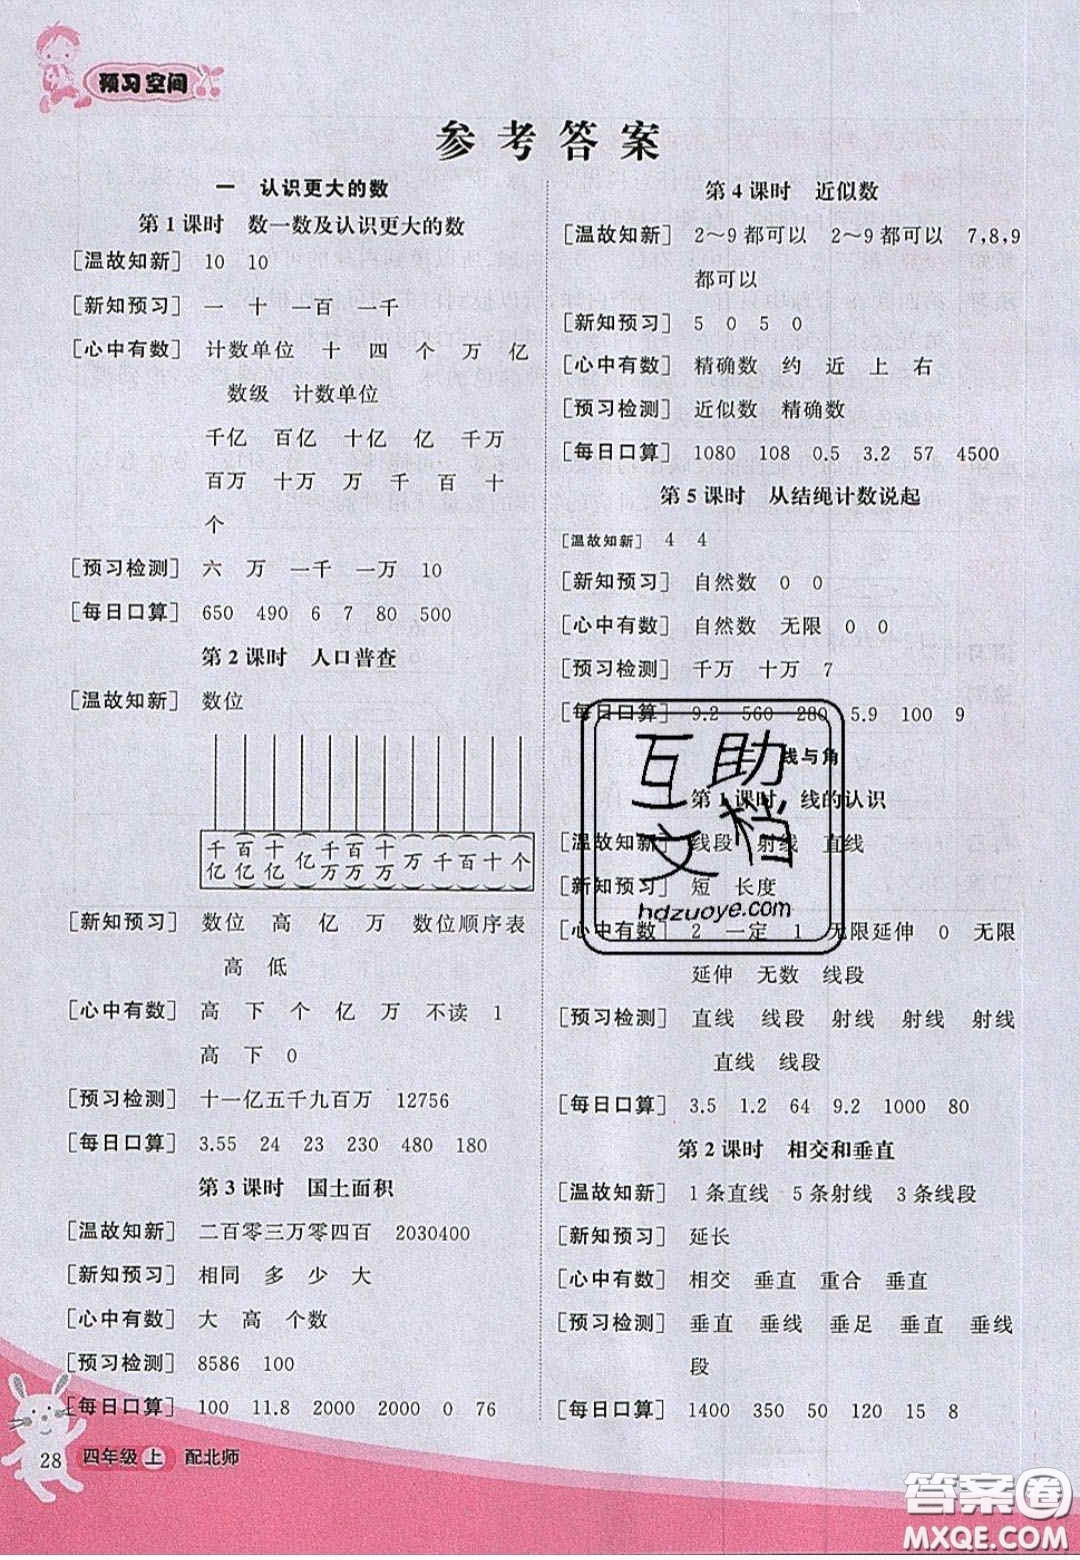 预习空间
参考答案
一 认识更大的数
第1课时 数一数及认识更大的数
[温故知新] 10 10
[新知预习] 一 十 一百 一千
[心中有数] 计数单位 十 四 个 万 亿
数级 计数单位
千亿 百亿 十亿 亿 千万
百万 十万 万 千 百 十
个
[预习检测] 六 万 一千 一万 10
[每日口算] 650 490 6 7 80 500
第2课时 人口普查
[温故知新] 数位
千亿 百亿 十亿 亿 千万 百万 十万 万 千 百 十 个
[新知预习] 数位 高 亿 万 数位顺序表
高 低
[心中有数] 高 下 个 亿 万 不读 1
高 下 0
[预习检测] 十一亿五千九百万 12756
[每日口算] 3.55 24 23 230 480 180
第3课时 国土面积
[温故知新] 二百零三万零四百 2030400
[新知预习] 相同 多 少 大
[心中有数] 大 高 个数
[预习检测] 8586 100
[每日口算] 100 11.8 2000 2000 0 76
第4课时 近似数
[温故知新] 2~9都可以 2~9都可以 7,8,9
都可以
[新知预习] 5 0 5 0
[心中有数] 精确数 约 近 上 右
[预习检测] 近似数 精确数
[每日口算] 1080 108 0.5 3.2 57 4500
第5课时 从结绳计数说起
[温故知新] 4 4
[新知预习] 自然数 0 0
[心中有数] 自然数 无限 0 0
[预习检测] 千万 十万 7
[每日口算] 9.2 560 280 5.9 100 9
线与角
第1课时 线的认识
[温故知新] 线段 射线 直线
[新知预习] 短 长度
[心中有数] 2 一定 1 无限延伸 0 无限
延伸 无数 线段
[预习检测] 直线 线段 射线 射线 射线
直线 线段
[每日口算] 3.5 1.2 64 9.2 1000 80
第2课时 相交和垂直
[温故知新] 1条直线 5条射线 3条线段
[新知预习] 延长
[心中有数] 相交 垂直 重合 垂直
[预习检测] 垂直 垂线 垂足 垂直 垂线
段
[每日口算] 1400 350 50 120 15 8
互助
文档
hdzuoye.com
28 四年级 上 配北师
答案圈
MXQE.COM